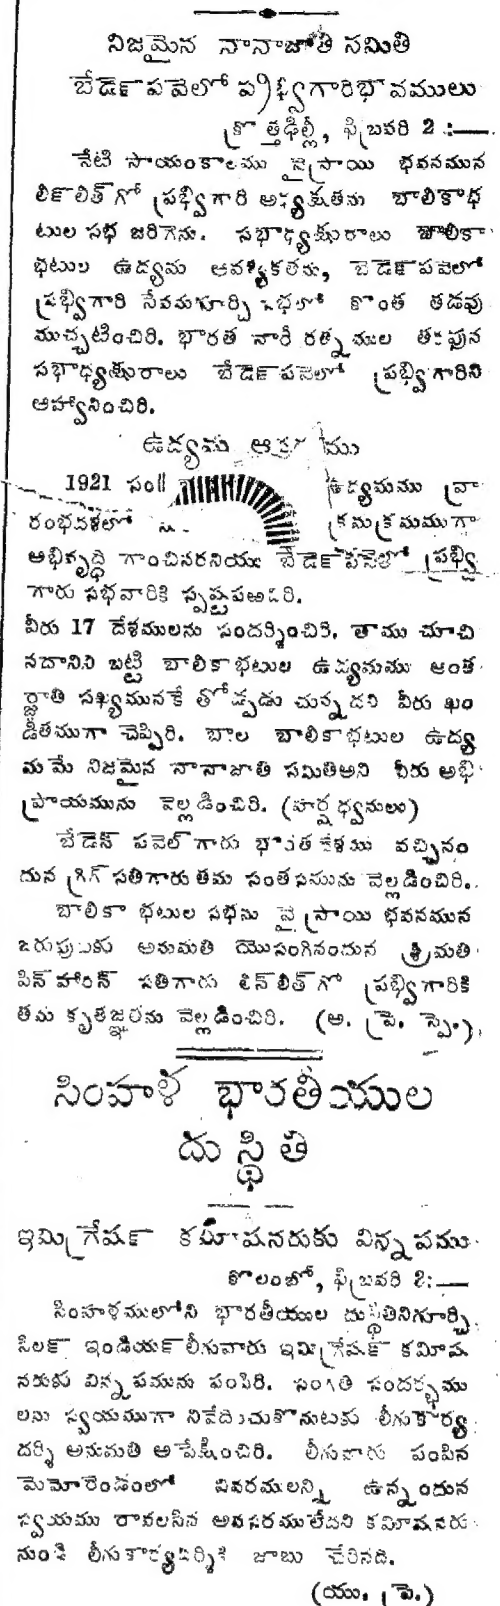 నిజమైన నానాజాతి సమితి
బేడెన్ పవెలో ప్రభ్విగారిభావములు
క్రొత్తఢిల్లీ, ఫిబ్రవరి 2 :—
నేటి సాయంకాలము వైస్రాయి భవనమున
లిన్‌లిత్‌గో ప్రభ్విగారి అధ్యక్షతను బాలికాభ
టుల సభ జరిగెను. సభాధ్యక్షురాలు బాలికా
భటుల ఉద్యమ ఆవశ్యకతను, బేడెన్ పవెలో
ప్రభ్విగారి సేవనుగూర్చి సభలో కొంత తడవు
ముచ్చటించిరి. భారత నారీ రత్నముల తరపున
సభాధ్యక్షురాలు బేడెన్ పవెలో ప్రభ్విగారిని
ఆహ్వానించిరి.
ఉద్యమ
1921 సం॥ ఉద్యమము ప్రా
రంభదశలో క్రమక్రమముగా
అభివృద్ధి గాంచినదనియు బేడెన్ పవెలో ప్రభ్వి
గారు సభవారికి స్పష్టపఱచిరి.
వీరు 17 దేశములను సందర్శించిరి. తాము చూచి
నదానిని బట్టి బాలికాభటుల ఉద్యమము అంత
ర్జాతి సఖ్యమునకే తోడ్పడు చున్నదని వీరు ఖం
డితముగా చెప్పిరి. బాల బాలికాభటుల ఉద్య
మమే నిజమైన నానాజాతి సమితిఅని వీరు అభి
ప్రాయమును వెల్లడించిరి. (హర్షధ్వనులు)
బేడెన్ పవెల్ గారు భారతదేశము వచ్చినం
దున గ్రిగ్ సతిగారు తమ సంతసమును వెల్లడించిరి.
బాలికా భటుల సభను వైస్రాయి భవనమున
జరుపుటకు అనుమతి యొసంగినందున శ్రీమతి
పిన్‌హారన్ సతిగారు లిన్‌లిత్‌గో ప్రభ్విగారికి
తమ కృతజ్ఞతను వెల్లడించిరి. (అ. ప్రె. స్పె.)
సింహళ భారతీయుల
దుస్థితి
ఇమిగ్రేషన్ కమీషనరుకు విన్నపము
కొలంబో, ఫిబ్రవరి 2:—
సింహళములోని భారతీయుల దుస్థితినిగూర్చి
సిలన్ ఇండియన్ లీగువారు ఇమిగ్రేషన్ కమీష
నరుకు విన్నపమును పంపిరి. సంగతి సందర్భము
లను స్వయముగా నివేదించుకొనుటకు లీగుకార్య
దర్శి అనుమతి అపేక్షించిరి. లీగువారు పంపిన
మెమోరెండంలో వివరములన్ని ఉన్నందున
స్వయము రావలసిన అవసరములేదని కమీషనరు
నుండి లీగుకార్యదర్శికి జాబు చేరినది.
(యు. ప్రె.)